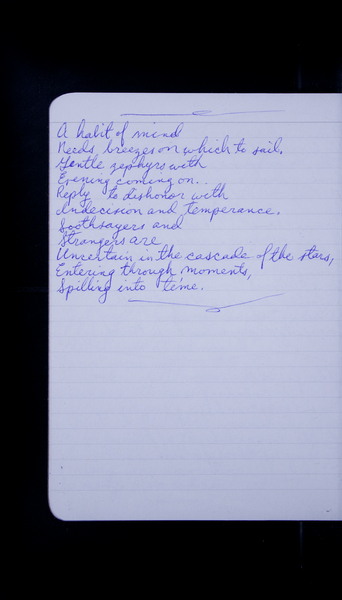 A habit of mind
Needs breezes on which to sail.
Gentle zephyrs with
Evening coming on..
Reply to dishonor with
Indecision and temperance.
Soothsayers and
Strangers are
Uncertain in the cascade of the stars,
Entering through moments,
Spilling into time.